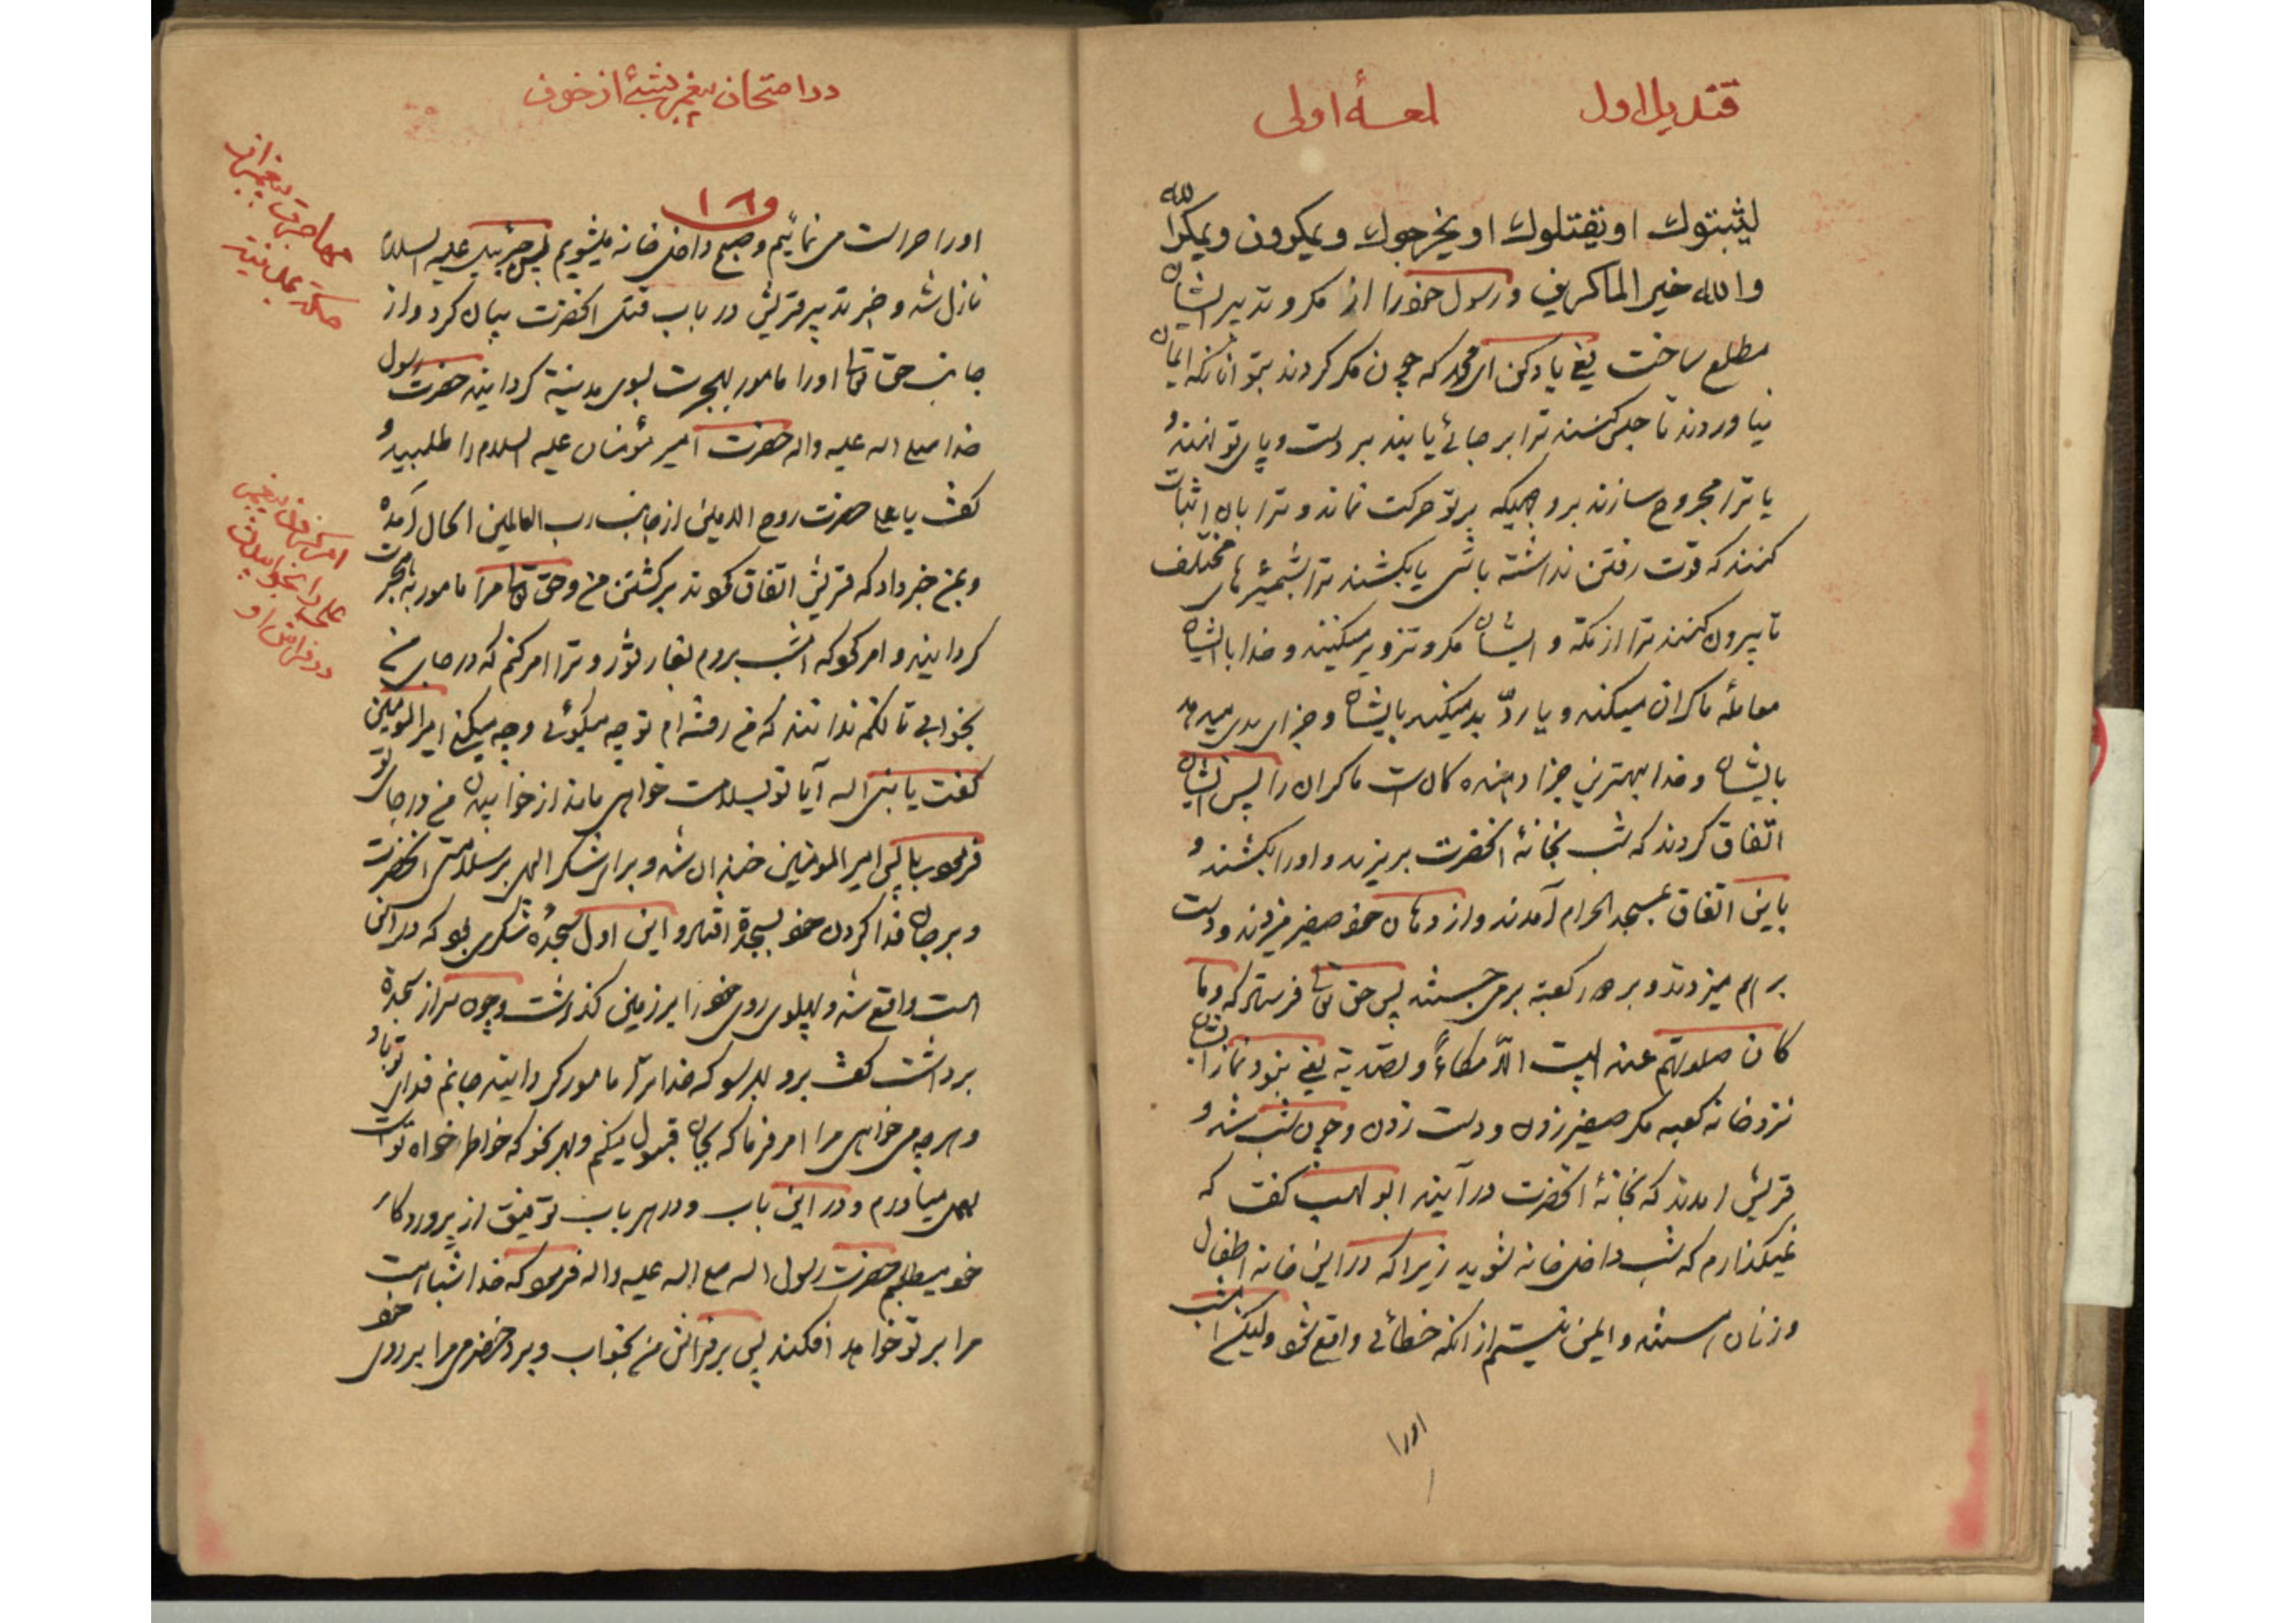 قندیل اول
لمعهٔ اولی
لیثبتوك او یقتلوك او یخرجوك و یمکرون و یمکر الله
والله خیر الماکرین و رسول خود را از مکر و تدبیر ایشان
مطلع ساخت یعنی یاد کن ای محمد که چون مکر کردند بتو آنانکه ایمان
نیاوردند تا حبس کنند ترا بر جائی یا بند بر دست و پای تو نهند و
یا ترا مجروح سازند بر وجهیکه بر تو حرکت نماند و ترا بان اثبات
کنند که قوت رفتن نداشته باشی یا بکشند ترا بشمشیرهای مختلف
تا بیرون کنند ترا از مکه و ایشان مکر و تزویر میکنند و خدا با ایشان
معاملهٔ ماکران میکند و یا ردّ بد میکند بایشان و جزای بدی میدهد
بایشان و خدا بهترین جزا دهنده کان است ماکران را پس ایشان
اتفاق کردند که شب بخانهٔ آنحضرت بریزند و او را بکشند و
باین اتفاق بمسجد الحرام آمدند و از دهان خود صفیر میزدند و دست
بر هم میزدند و بر دور کعبه برمی جستند پس حق تعالی فرستاد که و ما
کان صلوتهم عند البیت الّا مکاءً و تصدیة یعنی نبود نماز ایشان
نزد خانه کعبه مکر صفیر زدن و دست زدن و چون شب شد و
قریش امدند که بخانهٔ آنحضرت در آیند ابو لهب کفت که
نمیکذارم که شب داخل خانه شوید زیرا که در این خانه اطفال
و زنان هستند و ایمن نیستم از آنکه خطائی واقع شود و لیکن امشب
او را
در امتحان پیغمبر بشیٔ از خوف
و ١٦
او را حراست می نمائیم و صبح داخل خانه میشویم پس جبرئیل علیه السلام
نازل شد و خبر تدبیر قریش در باب قتل آنحضرت بیان کرد و از
جانب حق تعالی او را مامور بهجرت بسوی مدینه کردانید حضرت رسول
خدا صلی الله علیه و اله حضرت امیر مؤمنان علیه السلام را طلبید و
کفت یا علی حضرت روح الامین از جانب رب العالمین الحال آمده
و بمن خبر داد که قریش اتفاق نمودند بر کشتن من و حق تعالی مرا مامور بهجرت
کردانید و امر نمود که امشب بروم بغار ثور و ترا امر کنم که در جای من
بخوابی تا انکه ندانند که من رفته ام تو چه میکوئی و چه میکنی امیر المومنین
کفت یا نبی الله آیا تو بسلامت خواهی ماند از خوابیدن من در جای تو
فرمود بلی پس امیر المومنین خندان شد و برای شکر الهی بر سلامتی آنحضرت
و بر جان فدا کردن خود بسجده افتاد و این اول سجدهٔ شکری بود که در این
امت واقع شد و پهلوی روی خود را بر زمین کذاشت و چون سر از سجده
برداشت کفت برو بهر سو که خدا ترا مامور کردانیده جانم فدای تو باد و
و هر چه می خواهی مرا امر فرما که بجان قبول میکنم و بهر نحو که خاطر خواه تو است
بعمل میاورم و در این باب و در هر باب توفیق از پروردکار
خود میطلبم حضرت رسول الله صلی الله علیه و اله فرمود که خدا شباهت
مرا بر تو خواهد افکند پس بر فراش من بخواب و برد حضرمی مرا بر روی خود
مهاجرت پیغمبر از
مکه بمدینه
امر کردن پیغمبر
علی را بخوابیدن
در فراش او